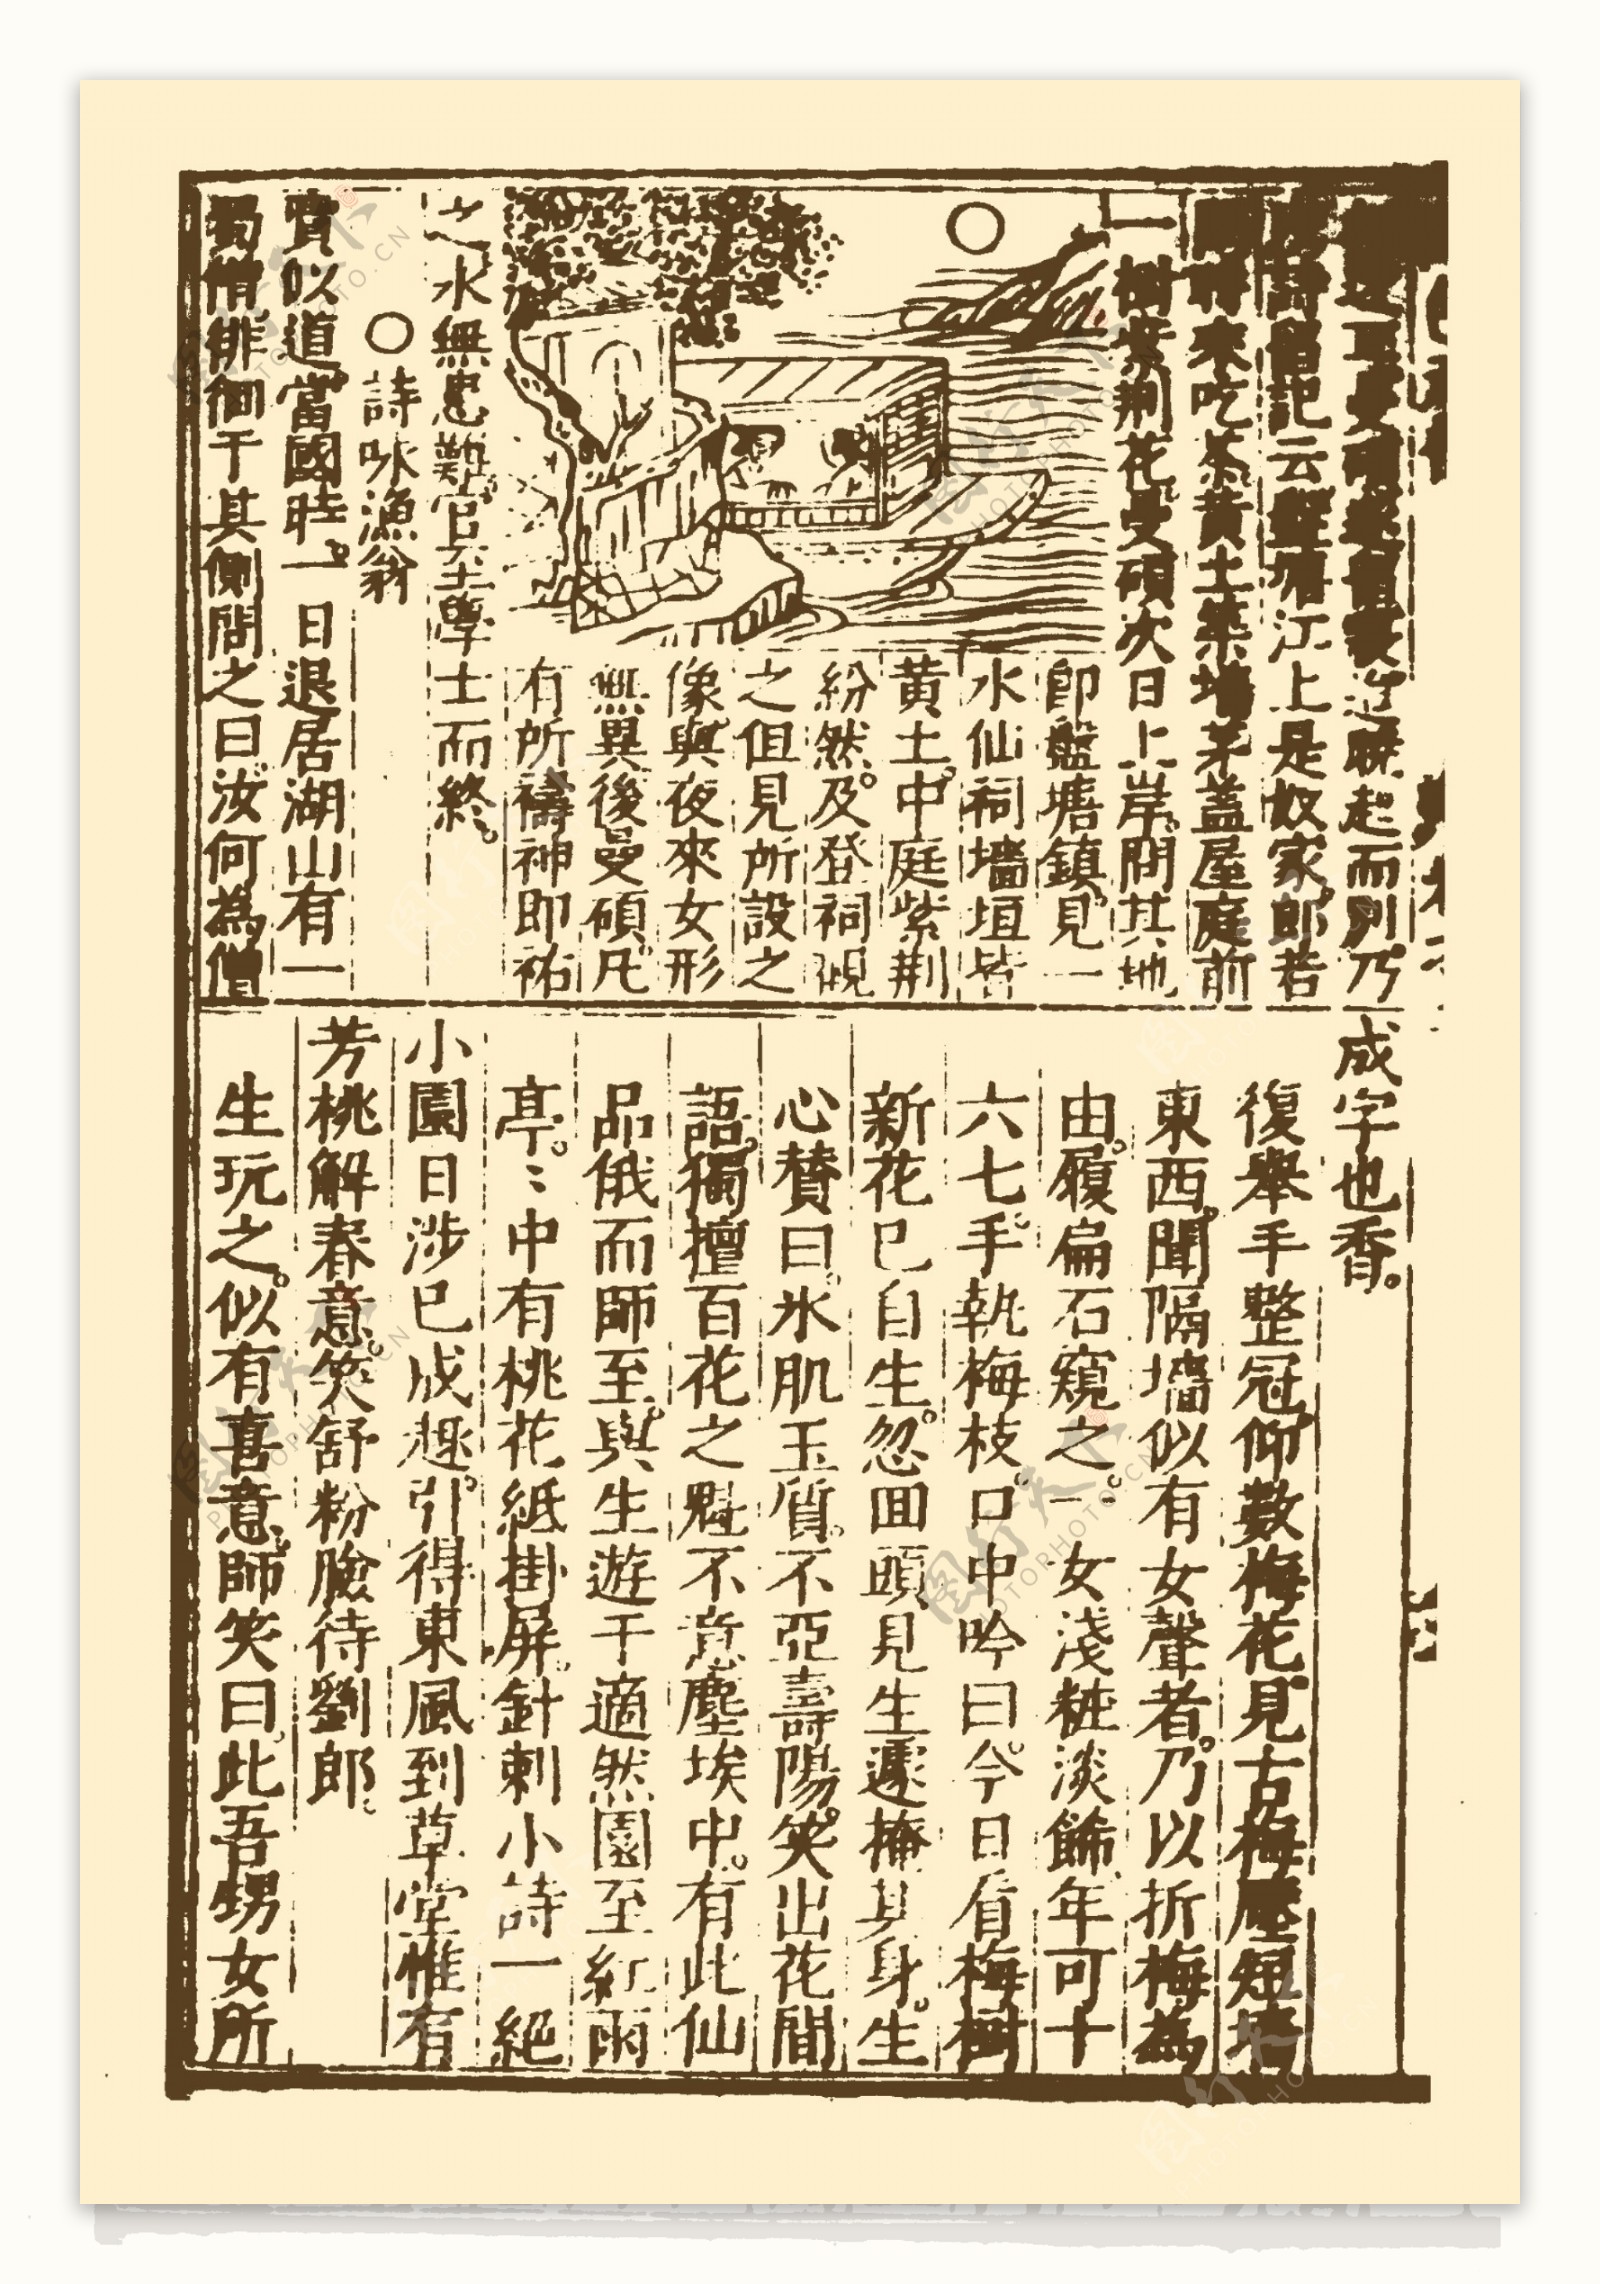 耳曼碩
詩留記云盤塘江上是奴家郎若
閒時來吃茶黃土築墻茅蓋屋庭前
一樹紫荊花曼碩次日上岸問其地
即盤塘鎮見一
水仙祠墻垣皆
黃土中庭紫荊
紛然及登祠覩
之但見所設之
像與夜來女形
無異後曼碩凡
有所禱神即祐
之水無患難官至學士而終
○詩咏漁翁
賈似道當國時一日退居湖山有一
蜀僧徘徊于其側問之曰汝何為僧
成字也香
復舉手整冠仰數梅花見古梅壓短墻
東西聞隔墻似有女聲者乃以折梅為
由履扁石窺之一女淺粧淡餙年可十
六七手執梅枝口中吟曰今日看梅樹
新花已自生忽回頭見生遽掩其身生
心賛曰氷肌玉質不亞壽陽笑出花間
語獨擅百花之魁不意塵埃中有此仙
品俄而師至與生遊于適然園至紅雨
亭〻中有桃花紙掛屏針刺小詩一絕
小園日涉已成趣引得東風到草堂惟有
芳桃解春意笑舒粉臉待劉郎
生玩之似有喜意師笑曰此吾甥女所